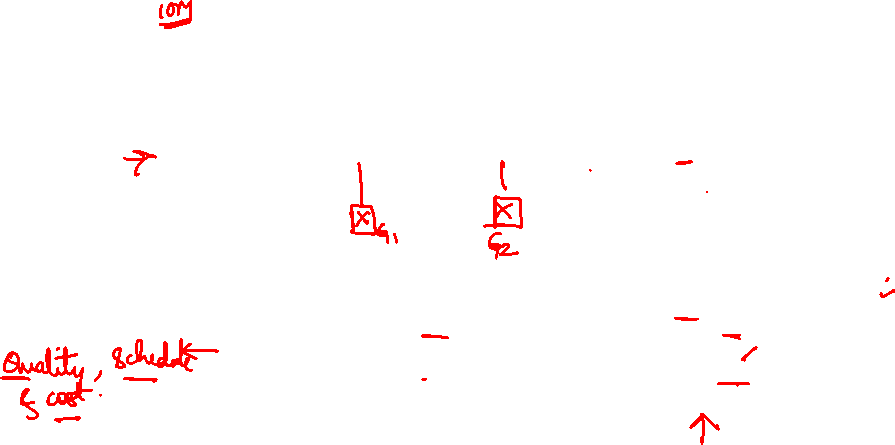 10M
X X
G1
G2
Quality, Schedule
& cost.